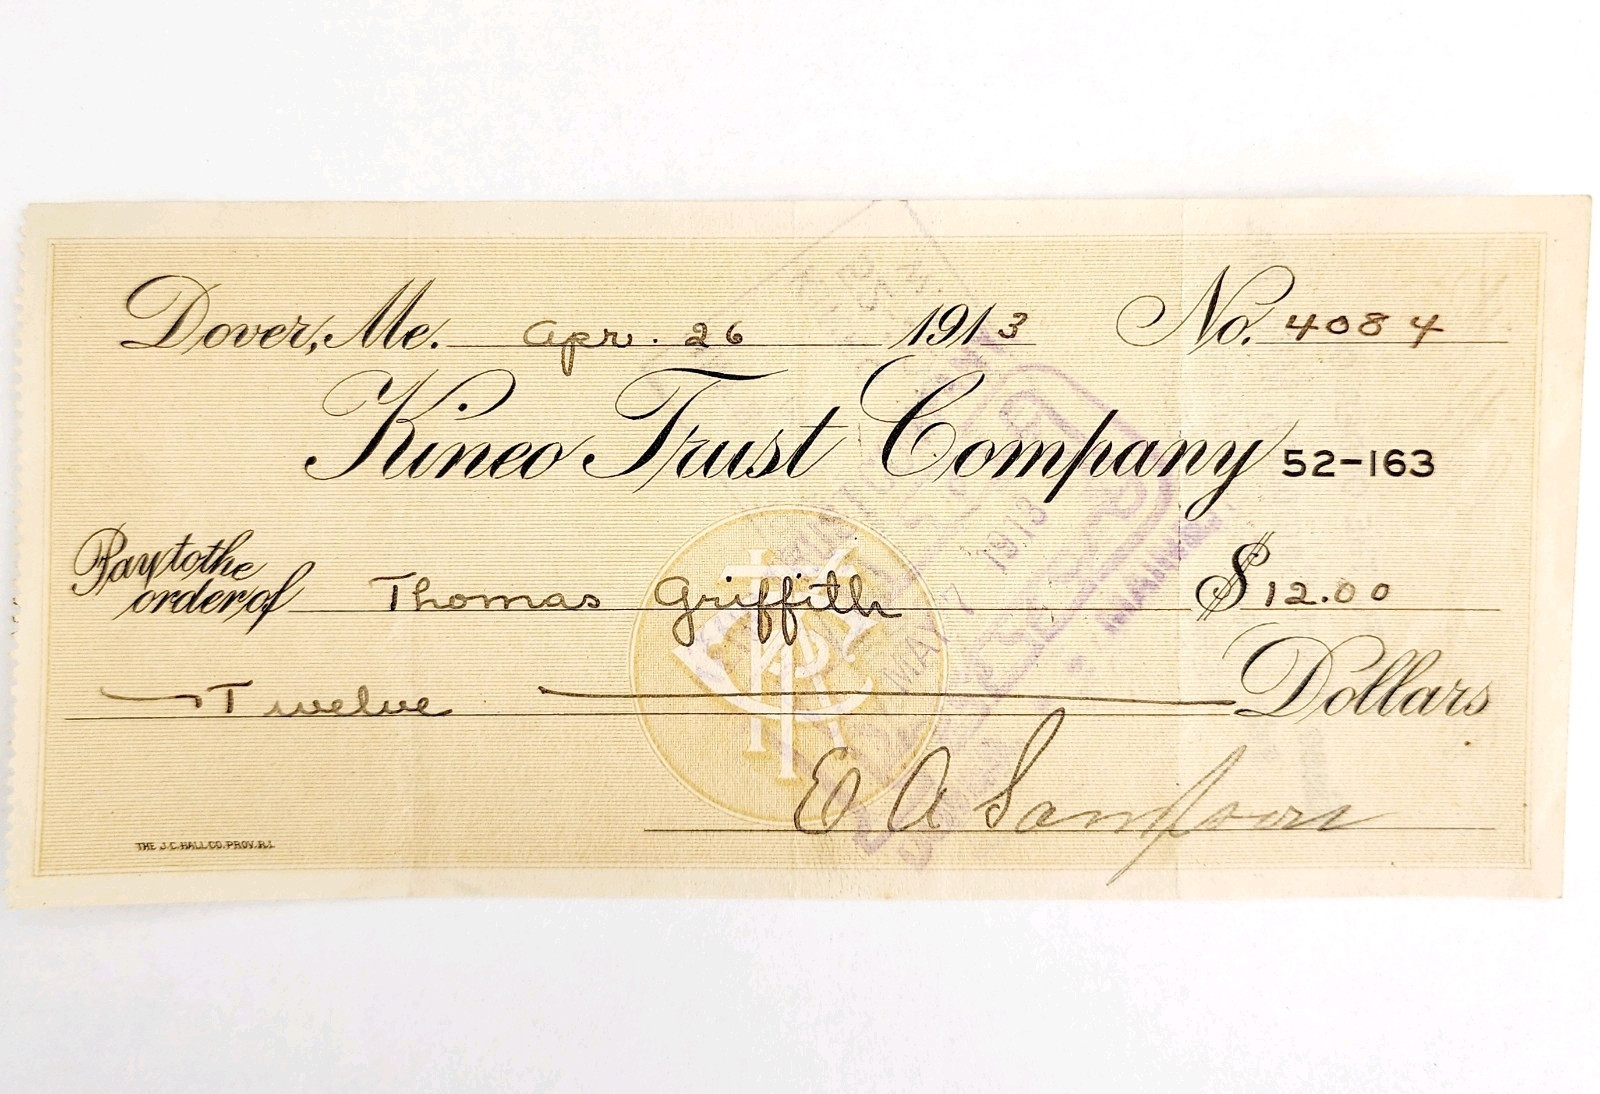 Dover, Me. Apr. 26 1913 No. 4084
Kineo Trust Company 52-163
Pay to the
order of Thomas Griffith $12.00
Twelve Dollars
E A Sampson
THE J.C. HALL CO. PROV. R.I.
MAY 7 1913